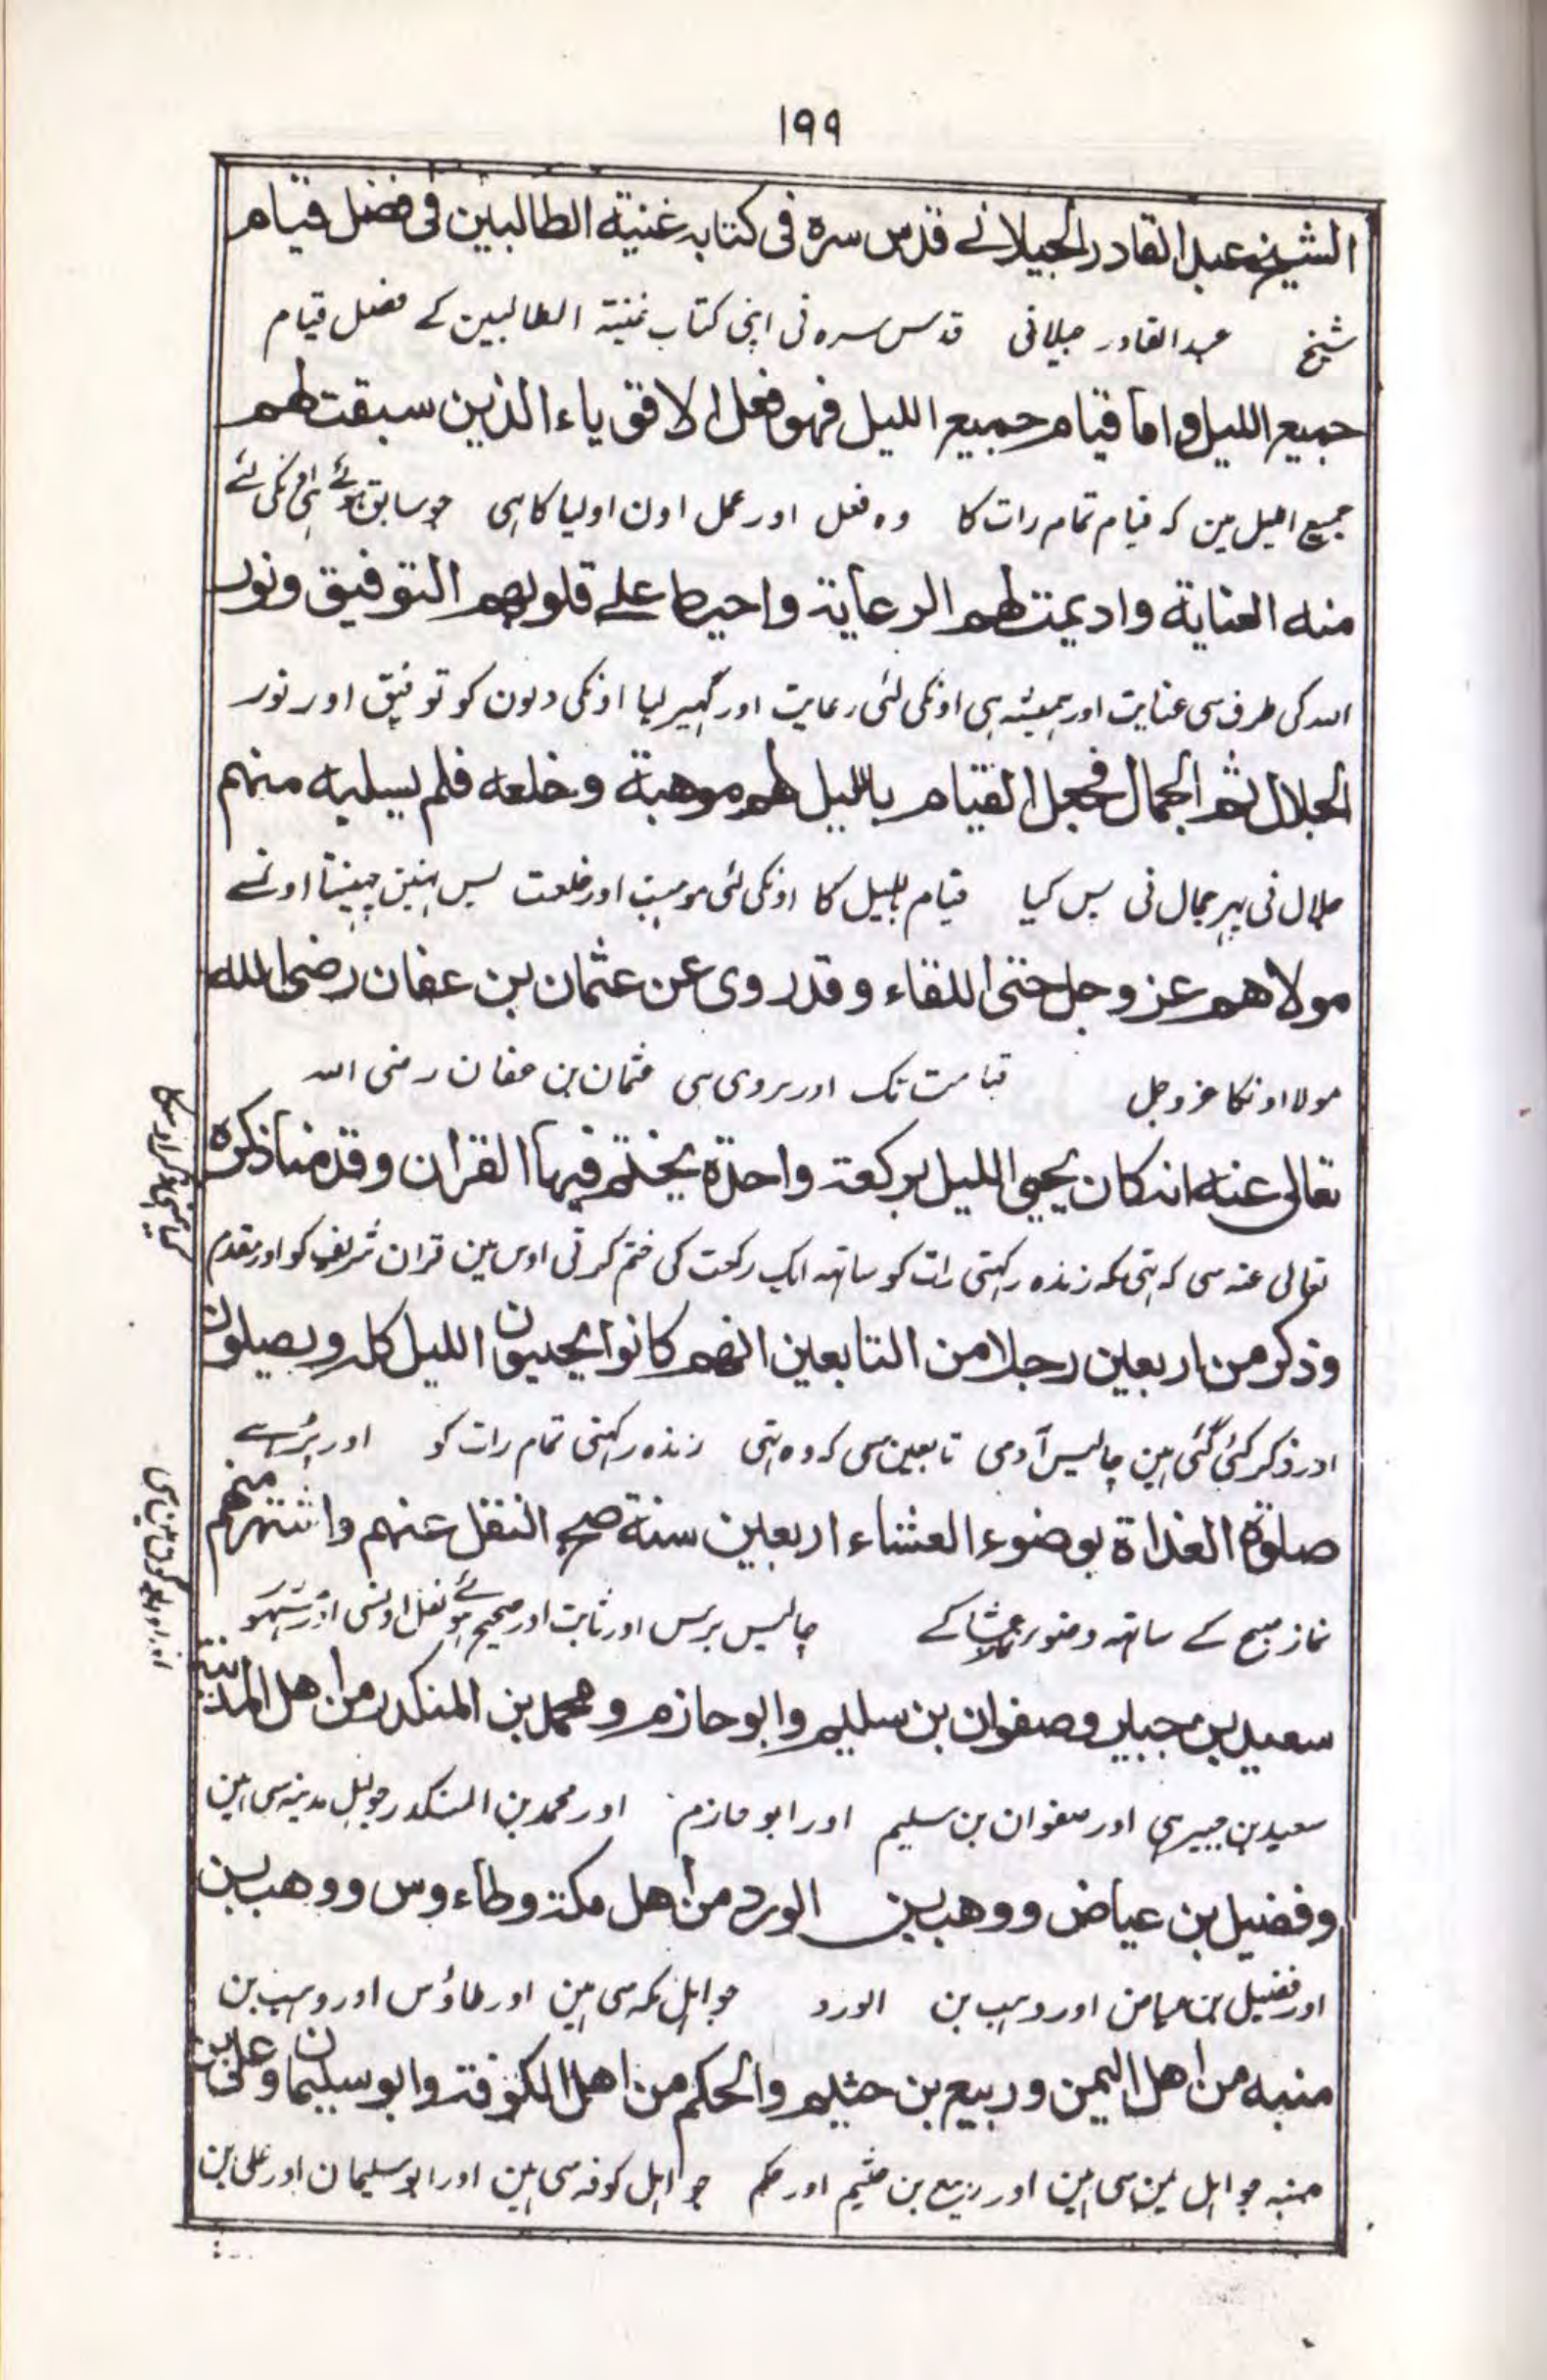 ۱۹۹
الشيخ عبد القادر الجيلانے قدس سره فى كتابه غنية الطالبين فى فضل قيام
شیخ عبد القادر جیلانی قدس سرہ نی اپنی کتاب غنیۃ الطالبین کے فضل قیام
جميع الليل واما قيام جميع الليل فهو فعل الاقوياء الذين سبقت لهم
جمیع اللیل مین کہ قیام تمام رات کا وہ فعل اور عمل اون اولیا کا ہی جو سابق ہوئے ہی انکی لئے
منه العناية واديمت لهم الرعاية واحيط علے قلوبهم التوفيق ونور
اللہ کی طرف سی عنایت اور ہمیشہ ہی اونکی لئی رعایت اور گہیر لیا اونکی دلون کو توفیق اور نور
الجلال ثم الجمال فجعل القيام بالليل لهم موهبة وخلعه فلم يسلبه منهم
جلال نی پہر جمال نی پس کیا قیام باللیل کا اونکی لئی موہبت اور خلعت پس نہین چہینتا اونسے
مولاهم عز وجل حتى اللقاء وقد روى عن عثمان بن عفان رضى الله
مولا اونکا عز و جل قیامت تک اور مروی ہی عثمان بن عفان رضی اللہ
تعالى عنه انه كان يحيى الليل بركعة واحدة يختم فيها القران وقد منا ذكره
تعالی عنہ سی کہ تہی کہ زندہ رکہتی رات کو ساتہہ ایک رکعت کی ختم کرتی اوس مین قران شریف کو اور مقدم
وذكر من اربعين رجلا من التابعين انهم كانوا يحيون الليل كله ويصلون
اور ذکر کئی گئی ہین چالیس آدمی تابعین سی کہ وہ تہی زندہ رکہتی تمام رات کو اور پڑہتے
صلوة الغداة بوضوء العشاء اربعين سنة صح النقل عنهم واشتهر منهم
نماز صبح کے ساتہہ وضوء عشا کے چالیس برس اور ثابت اور صحیح ہوئے نقل اونسی اور مشہور
سعيد بن جبير وصفوان بن سليم وابو حازم ومحمد بن المنكدر من اهل المدينة
سعید بن جبیر ہی اور صفوان بن سلیم اور ابو حازم اور محمد بن المنکدر جو اہل مدینہ سی ہین
وفضيل بن عياض ووهب بن الورد من اهل مكة وطاءوس ووهب بن
اور فضیل بن عیاض اور وہب بن الورد جو اہل مکہ سی ہین اور طاؤس اور وہب بن
منبه من اهل اليمن وربيع بن خثيم والحكم من اهل الكوفة وابو سليمان وعلى بن
منبہ جو اہل یمن سی ہین اور ربیع بن خثیم اور حکم جو اہل کوفہ سی ہین اور ابو سلیمان اور علی بن